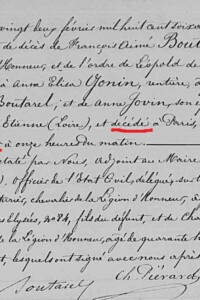 vingt deux février mil huit cent soix
de décès de François Aimé Boutar
'Honneur, et de l'ordre de Léopold de
à Anna Elisa Gonin, rentière, à
Boutarel, et de Anne Jovin, son é
Etienne (Loire), et décédé à Paris,
à onze heures du matin.
taté par Nous, adjoint au Maire
Officier de l'Etat Civil, délégués, sur
rts, chevalier de la Légion d'Honneur, a
es Elysées, N° 84, fils du défunt, et de Cha
la Légion d'Honneur, âgé de quarante
t, lesquels ont signé avec nous après
Boutarel Ch. Piérard